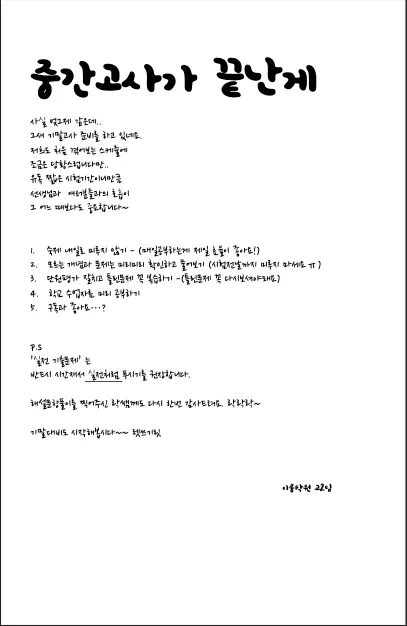 중간고사가 끝난게
사실 엊그제 같은데..
그새 기말고사 준비를 하고 있네요.
저희도 처음 겪어보는 스케줄에
조금은 당황스럽니다만..
유독 짧은 시험기간이니만큼
선생님과 여러분들과의 호흡이
그 어느 때보다도 중요합니다~
1. 숙제 내일로 미루지 않기 - (매일공부하는게 제일 효율이 좋아요!)
2. 모르는 개념과 문제는 미리미리 확인하고 물어보기 (시험전날까지 미루지 마세요 ㅠ)
3. 단원평가 잘치고 틀린문제 꼭 복습하기 -(틀린문제 꼭 다시보셔야돼요)
4. 학교 수업자료 미리 공부하기
5. 구독과 좋아요...?
P.S
'실전 기출문제' 는
반드시 시간재서 실전처럼 푸시기를 권장합니다.
해설문항풀이를 찍어주신 락쌤께도 다시 한번 감사드려요. 락락락~
기말대비도 시작해봅시다~~ 렛쓰기릿
이룸학원 고2팀